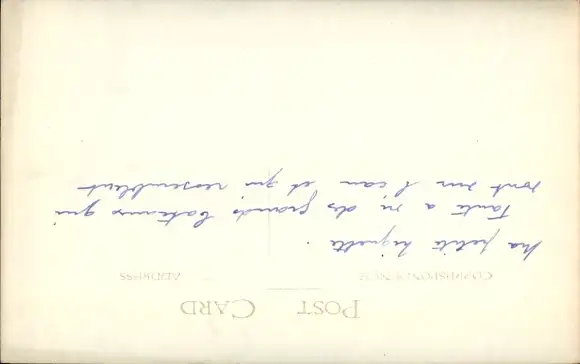 POST CARD
CORRESPONDENCE
ADDRESS
Ma petite
Tante a vu des grands bateaux qui
vont sur l eau et qui ressemblent